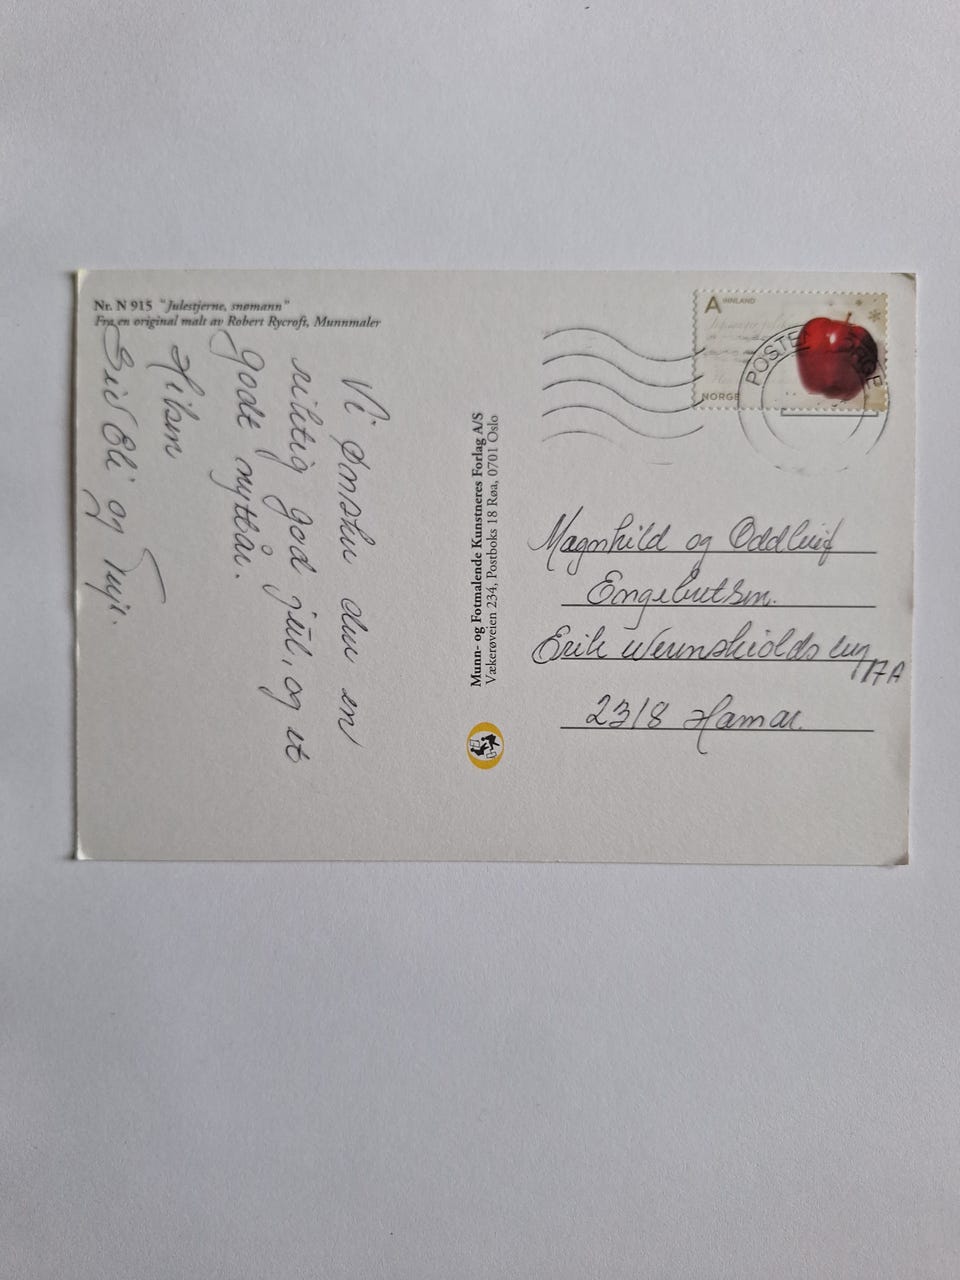 Nr. N 915 "Julestjerne, snømann"
Fra en original malt av Robert Rycroft, Munnmaler
Vi ønsker dere en
riktig god jul, og et
godt nyttår.
Hilsen
Siv Eli og Terje.
Munn- og Fotmalende Kunstneres Forlag A/S
Vækerøveien 234, Postboks 18 Røa, 0701 Oslo
A INNLAND
NORGE
POSTEN NORGE
Magnhild og Oddleif
Engebretsen.
Erik Werenskiolds veg
17A
2318 Hamar.